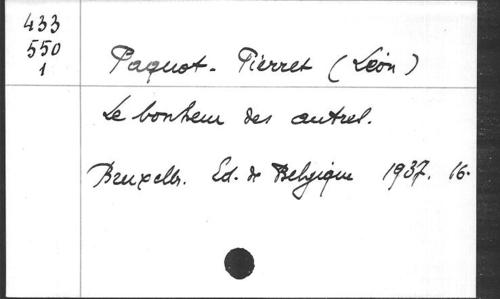 433
550
1
Paquot-Pierret (Léon)
Le bonheur des autres.
Bruxelles. Ed. de Belgique 1937. 16.